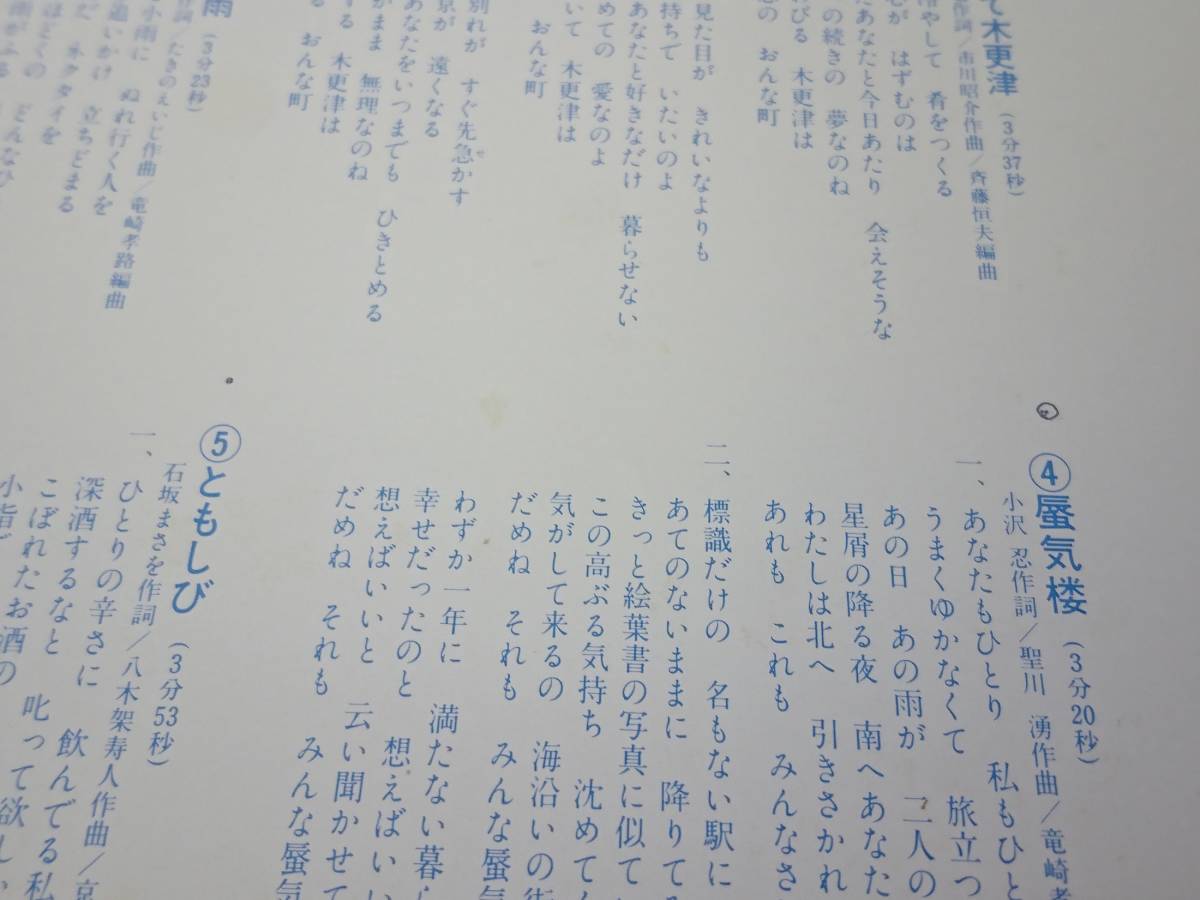 て木更津(3分37秒)
作詞/市川昭介作曲/斉藤恒夫編曲
やして 肴をつくる
が はずむのは
たあなたと今日あたり 会えそうな
の続きの 夢なのね
びる 木更津は
の おんな町
見た目が きれいなよりも
持ちで いたいのよ
あなたと好きなだけ 暮らせない
めての 愛なのよ
いて 木更津は
おんな町
別れが すぐ先急かす
京が 遠くなる
あなたをいつまでも ひきとめる
がまま 無理なのね
する 木更津は
る おんな町
雨(3分23秒)
作詞/たきのえいじ作曲/竜崎孝路編曲
小雨に ぬれ行く人を
追いかけ 立ちどまる
だ ネクタイを
ほどくの
④蜃気楼(3分20秒)
小沢 忍作詞/聖川 湧作曲/竜崎孝
一、あなたもひとり 私もひと
うまくゆかなくて 旅立つ
あの日 あの雨が 二人の
星屑の降る夜 南へあなた
わたしは北へ 引きさかれ
あれも これも みんなさ
二、標識だけの 名もない駅に
あてのないままに 降りてる
きっと絵葉書の写真に似てい
この高ぶる気持ち 沈めてく
気がして来るの 海沿いの街
だめね それも みんな蜃気
わずか一年に 満たない暮ら
幸せだったのと 想えばい
想えばいいと 云い聞かせて
だめね それも みんな蜃気
⑤ともしび(3分53秒)
石坂まさを作詞/八木架寿人作曲/京
一、ひとりの辛さに 飲んでる私
深酒するなと 叱って欲しい
こぼれたお酒の
小指で